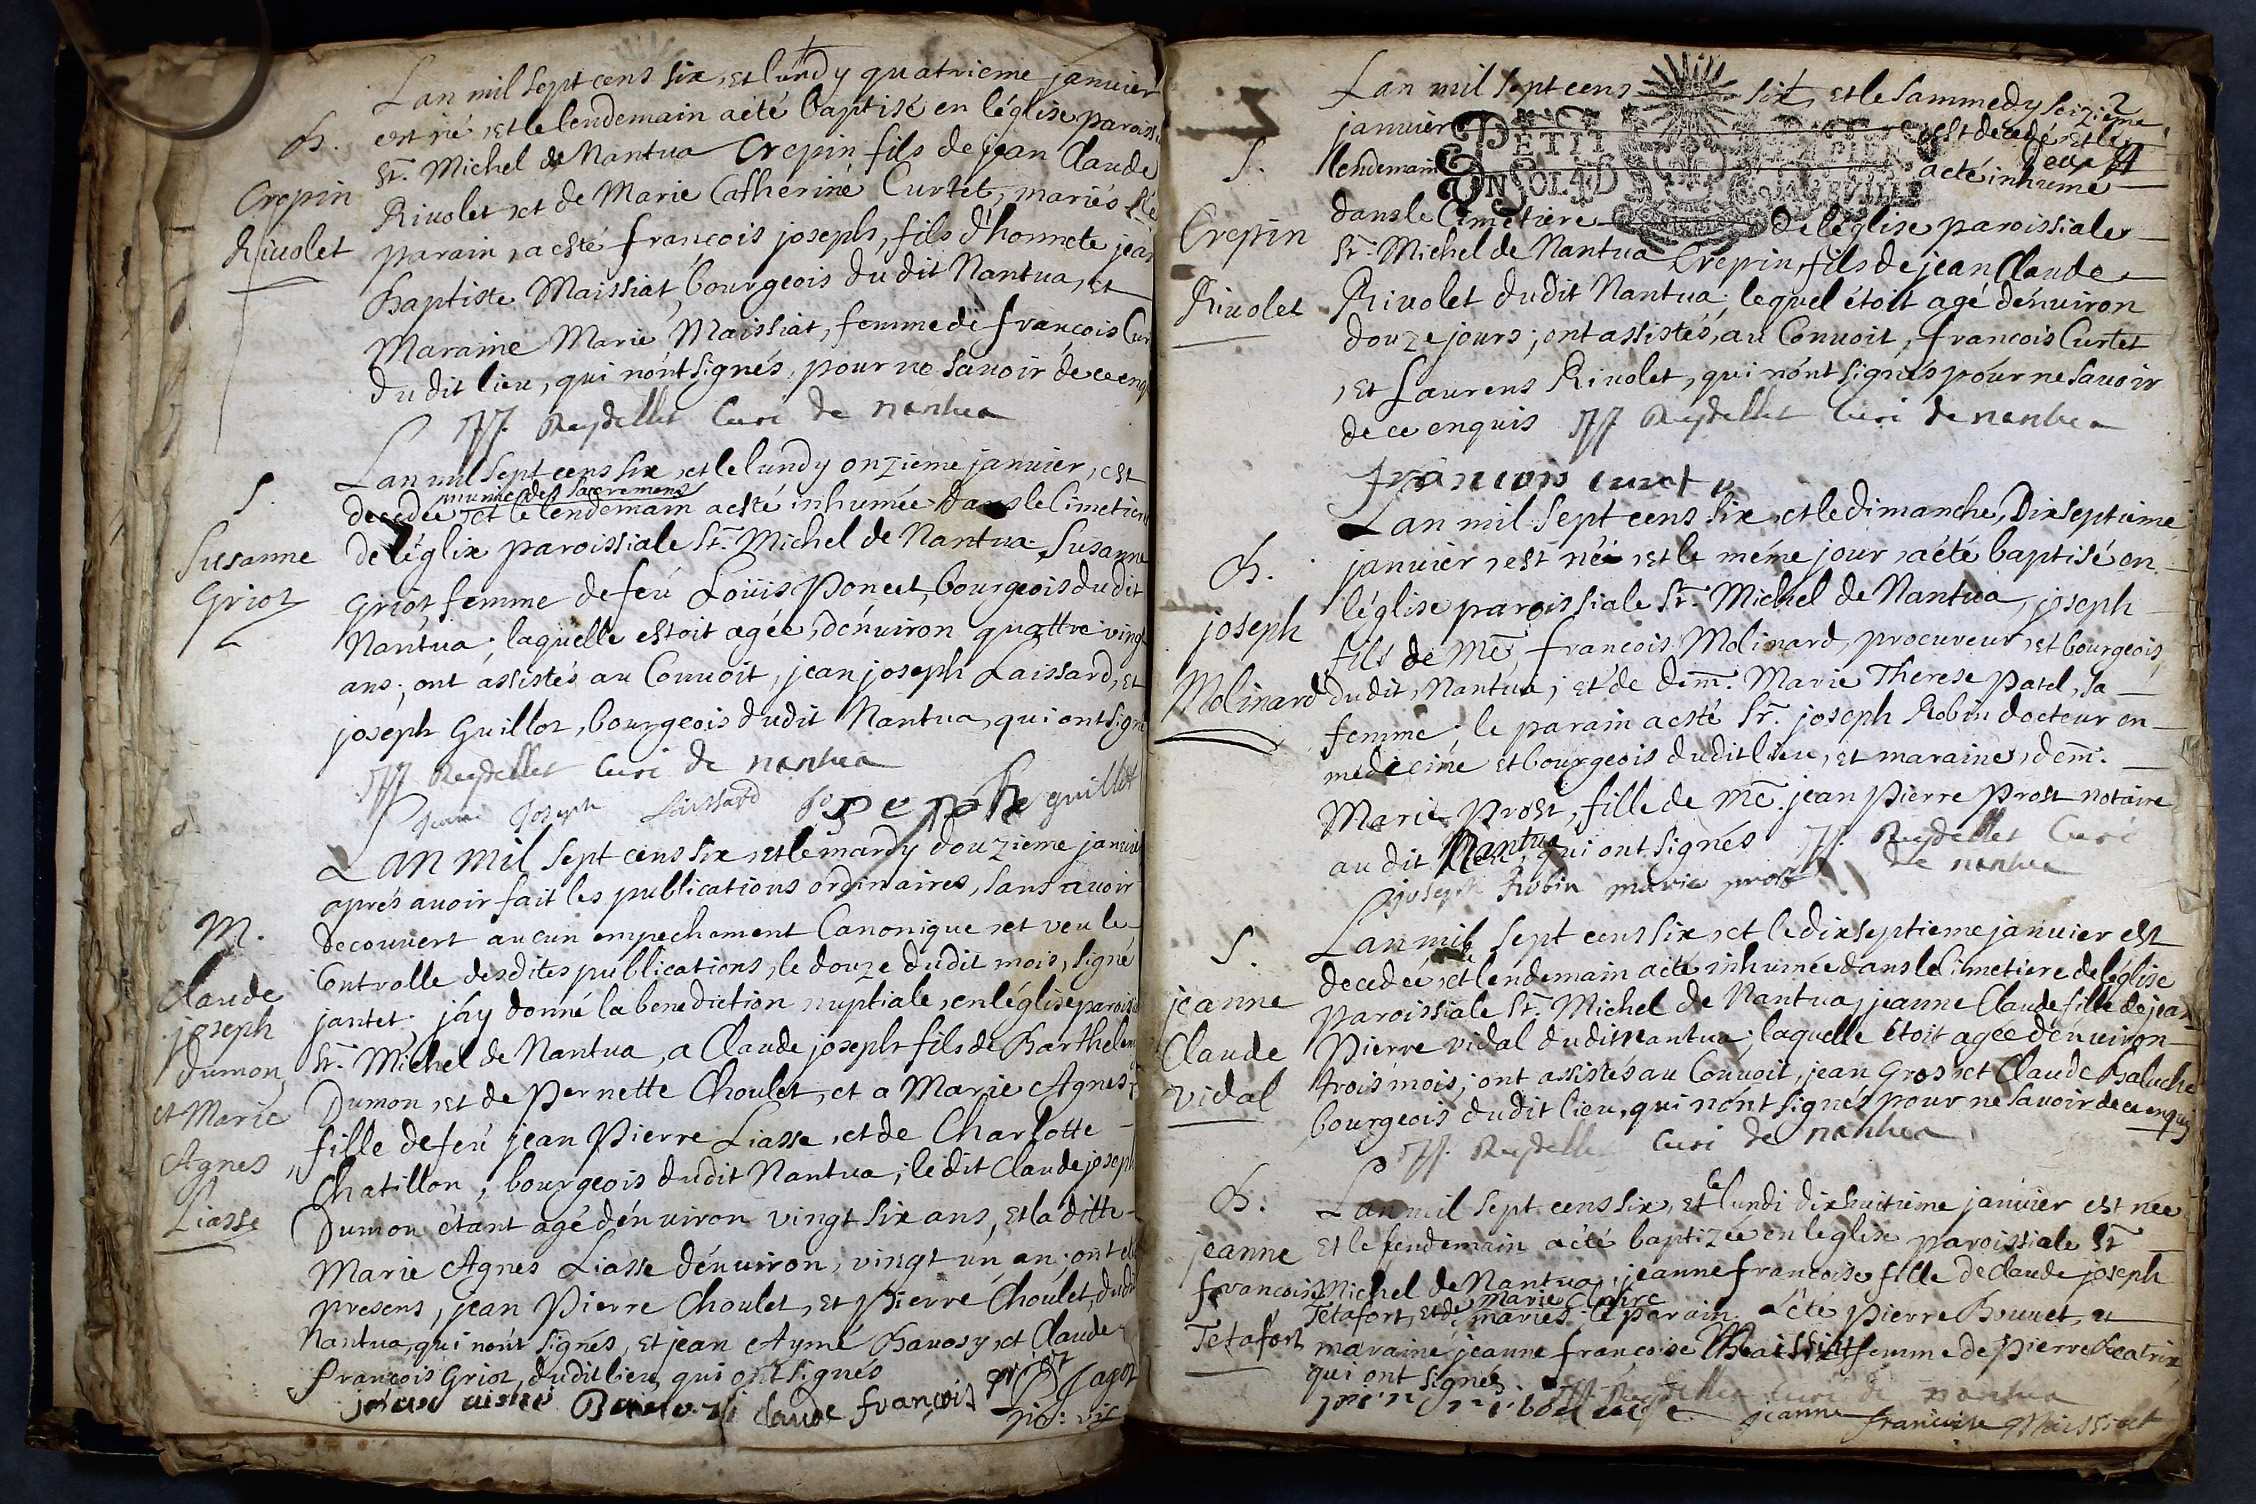 Lan mil sept cens six, et lundy quatrieme janvier
B.
est né et le lendemain a été baptisé en léglise paroiss
St. Michel de Nantua Crepin fils de jean Claude
Crepin
Rivolet
Rivolet et de Marie Catherine Curtet, mariés Le
parain, a esté françois joseph, fils d'honnete jean
Baptiste Maissiat, bourgeois dudit Nantua, et
Maraine Marie Maissiat, femme de françois Cur
dudit lieu, qui n'ont signés, pour ne savoir de ce enq
Reydellet Curé de nantua
Lan mil sept cens six, et le lundy onzieme janvier, est
S.
munie des sacremens
decedée et le lendemain a esté inhumée dans le Cimetiere
Susanne
Griot
de léglise paroissiale St. Michel de Nantua Susanne
Griot, femme de feu Loüis Poncet, bourgeois dudit
Nantua; laquelle estoit agée, dénviron quattre vingt
ans; ont assistés au Convoit, jean joseph Laissard, et
joseph Guillot, bourgeois dudit Nantua, qui ont signé
Reydellet Curé de nantua
jean joseph Laissard joseph guillot
Lan mil sept cens six et le mardy douzieme janvier
aprés avoir fait les publications ordinaires, sans avoir
M.
decouvert aucun empechement Canonique et veu le
Controlle desdites publications, le douze dudit mois, signé
Claude
joseph
dumon,
et Marie
Agnes
Liasse
jantet; j'ay donné la benediction nuptiale en léglise parois
St. Michel de Nantua, a Claude joseph fils de Barthelem
Dumon, et de Pernette Choulet, et a Marie Agnes
fille de feu jean Pierre Liasse, et de Charlotte
Chatillon, bourgeois dudit Nantua; le dit Claude joseph
Dumon étant agé dénviron vingt six ans, et la ditte
Marie Agnes Liasse dénviron, vingt un an; ont eté
presens, jean Pierre Choulet, et Pierre Choulet, dudit
Nantua, qui n'ont signés, et jean Aymé Bavosy et Claude
françois Griot, dudit lieu, qui ont signés
claude françois griot Jagot
vic
Lan mil sept cens six, et le Sammedy seizieme
2
janvier est decedé et le
PETIT PAPIER
UN SOL 4 D
S.
lendemain a eté inhumé
dans le Cimetiere de léglise paroissiale
Crepin
Rivolet
St. Michel de Nantua Crepin, fils de jean Claude
Rivolet dudit Nantua; lequel étoit agé dénviron
douze jours; ont assistés, au Convoit, françois Curtet
et Laurens Rivolet, qui n'ont signés pour ne savoir
de ce enquis Reydellet Curé de nantua
francois curtet
Lan mil sept cens six et le dimanche, Dixseptieme
B.
janvier est né et le méme jour a été baptisé en
joseph
Molinard
léglise paroissiale St. Michel de Nantua, joseph
fils de Me. françois Molinard, procureur, et bourgeois
dudit, Nantua; et de dem. Marie Therese Patel, sa
femme; le parain a esté Sr. joseph Robin docteur en
medecine et bourgeois dudit lieu, et maraine, dem.
Marie Prost, fille de Me. jean Pierre Prost notaire
au dit Nantua, qui ont signés Reydellet Curé
de nantua
joseph Robin marie prost
Lan mil sept cens six et le dixseptieme janvier est
S.
decedée et lendemain a eté inhumée dans le Cimetiere de léglise
jeanne
Claude
Vidal
paroissiale St. Michel de Nantua, jeanne Claude fille de jean
Pierre Vidal dudit nantua; laquelle étoit agée dénviron
trois mois; ont assistés au Convoit, jean Gros et Claude Baluche
bourgeois dudit lieu, qui n'ont signés pour ne savoir de ce enquis
Reydellet Curé de nantua
B.
Lan mil sept cens six, et le lundi dixhuitieme janvier est née
jeanne
françoise
Tetafort
et le lendemain a été baptizée en leglise paroissiale St.
Michel de Nantua; jeanne françoise fille de Claude joseph
Tetafort, et de Marie Claire mariés le parain a été Pierre Bouvet, et
maraine jeanne françoise Maissiat femme de Pierre Beatrix
qui ont signés
Reydellet Curé de nantua
jeanne francoise Maissiat